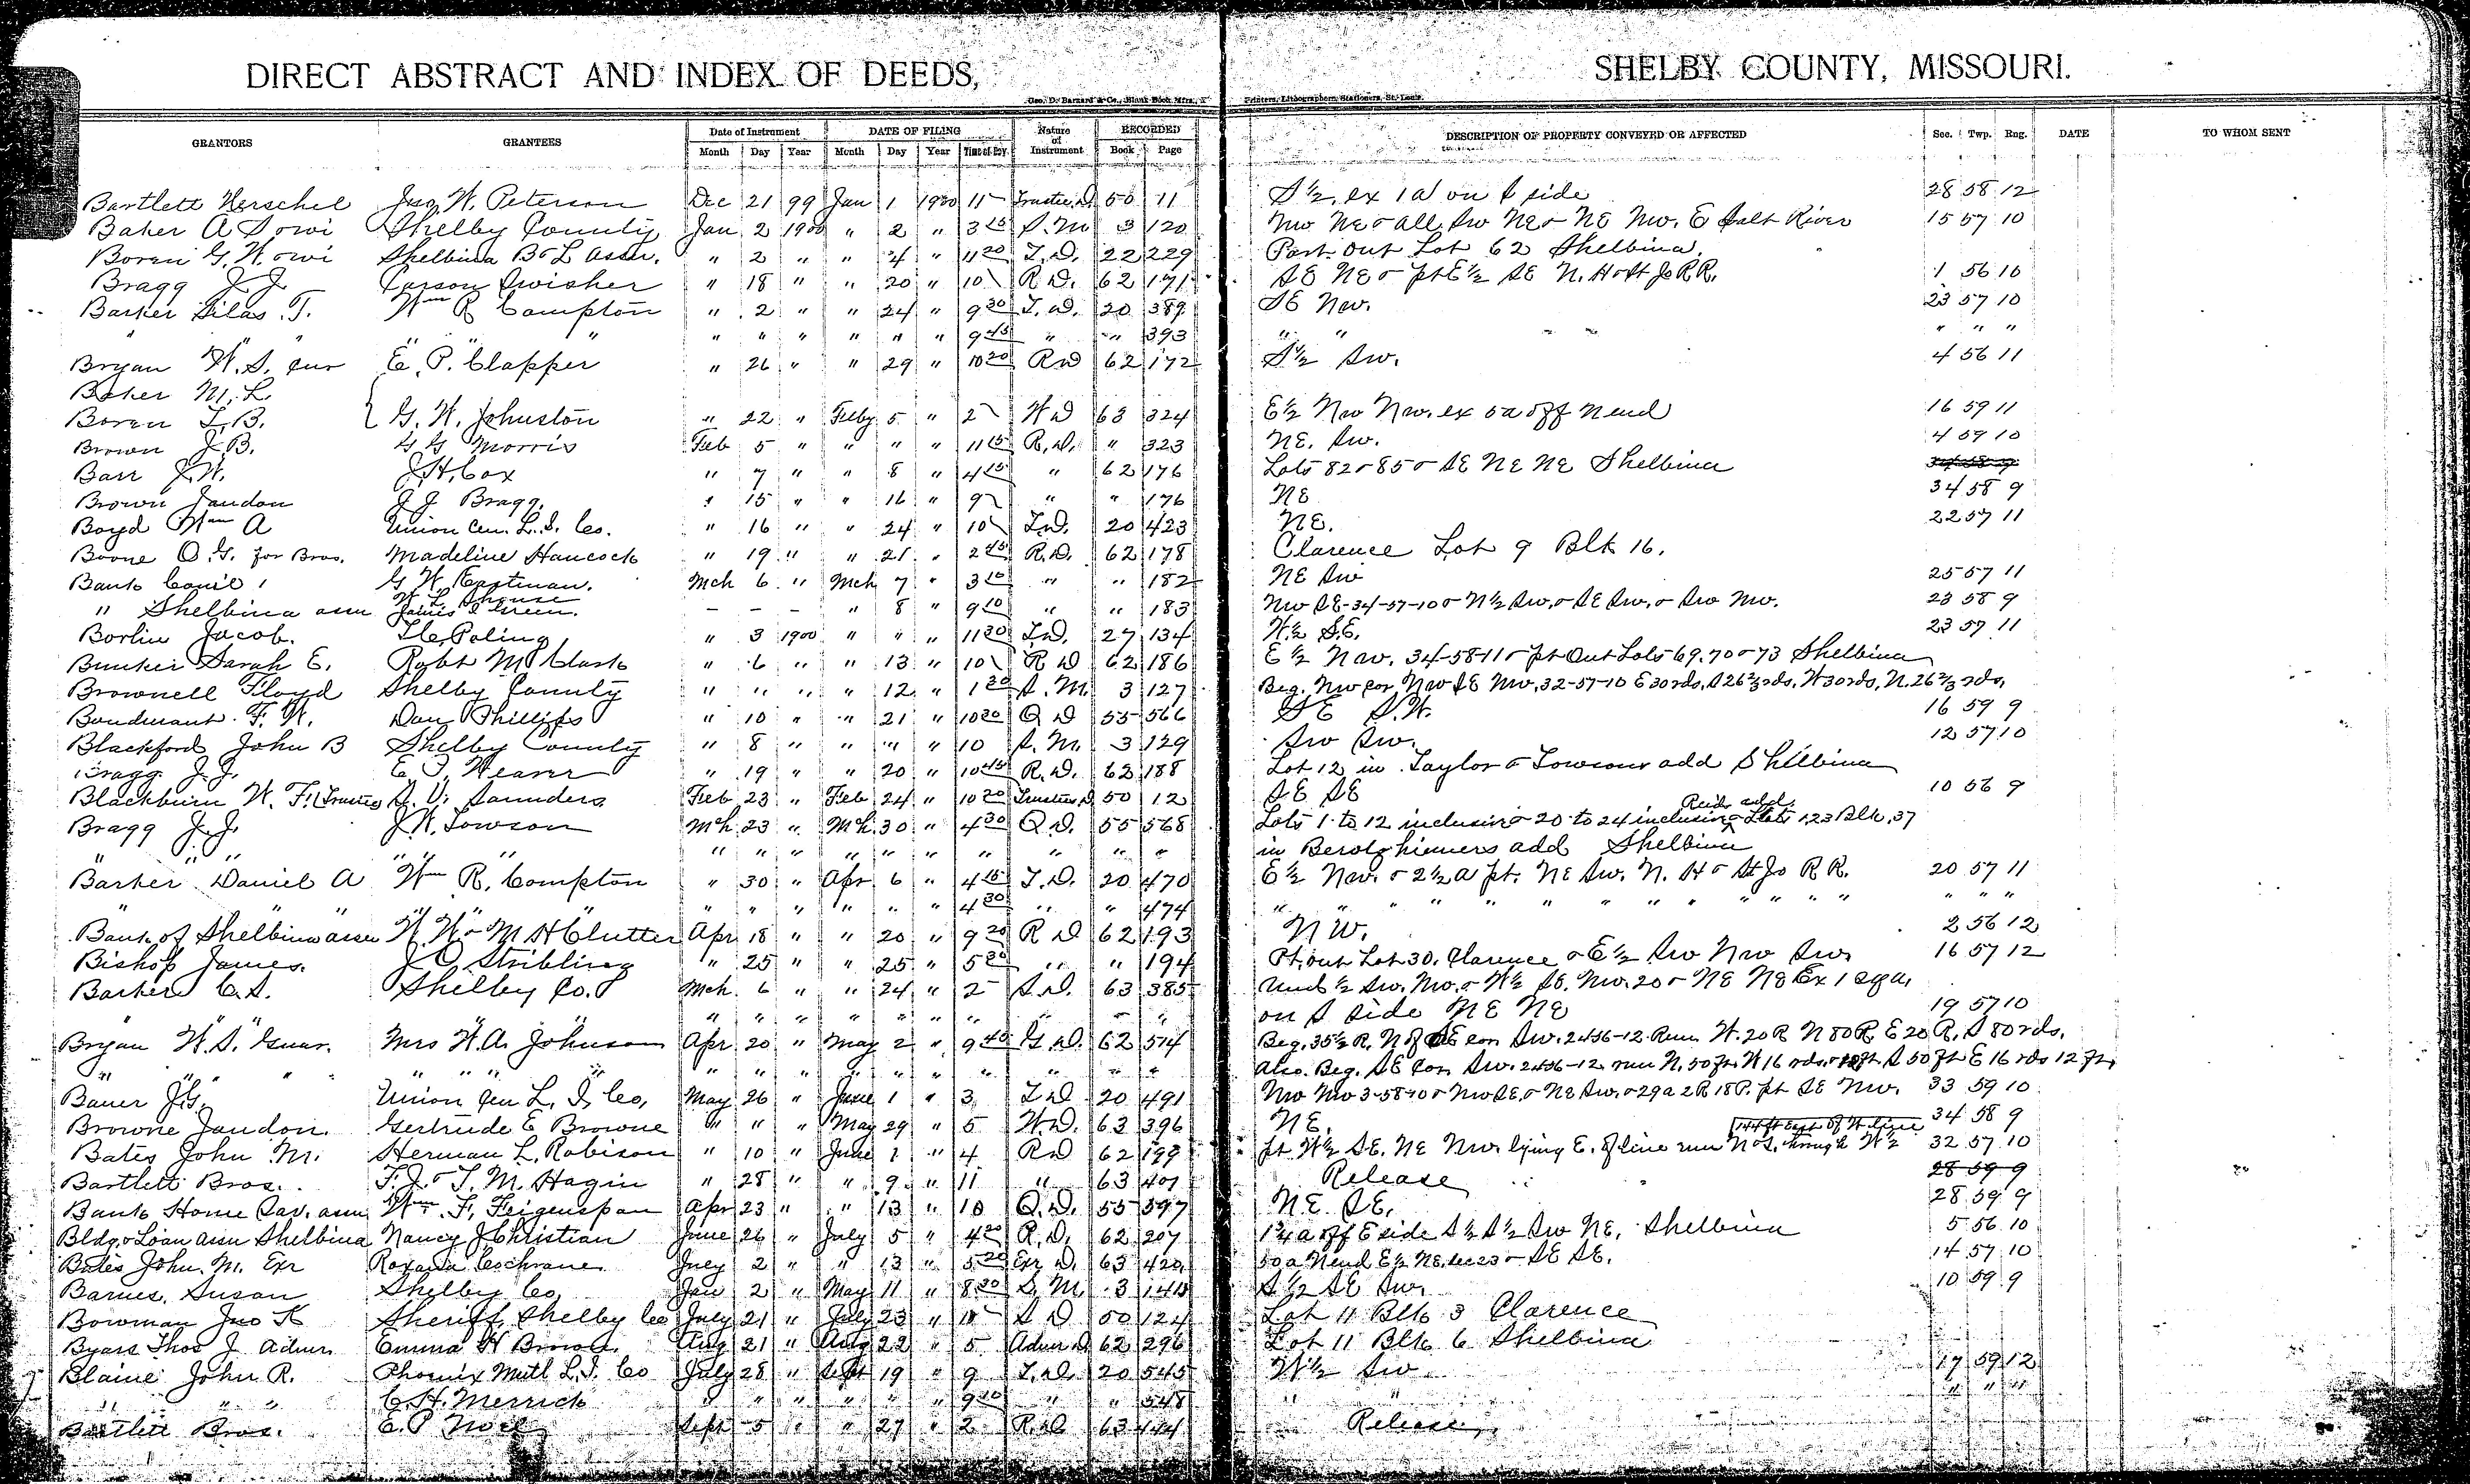 DIRECT ABSTRACT AND INDEX OF DEEDS, SHELBY COUNTY, MISSOURI.
Geo. D. Barnard & Co., Blank Book Mfrs., Printers, Lithographers, Stationers, St. Louis.
GRANTORS GRANTEES Date of Instrument DATE OF FILING Nature of Instrument RECORDED DESCRIPTION OF PROPERTY CONVEYED OR AFFECTED Sec. Twp. Rng. DATE TO WHOM SENT
Month Day Year Month Day Year Time of Day Book Page
Bartlett Herschel Jno. W. Peterson Dec 21 99 Jan 1 1900 11 Trustee D 50 11 S ½ ex 1a on S side 28 58 12
Baker A S owi Shelby County Jan 2 1900 " 2 " 3 15 S. M. 3 120 NW NE & all SW NE & NE NW. E Salt River 15 57 10
Boren G. W. owi Shelbina B & L Assn. " 2 " " 4 " 11 20 T. D. 22 229 Part Out Lot 62 Shelbina.
Bragg J. J. Carson Swisher " 18 " " 20 " 10 R D. 62 171 SE NE & pt E ½ SE N. H & St Jo R.R. 1 56 10
Barker Silas T. Wm R Compton " 2 " " 24 " 9 30 T. D. 20 389 SE NW. 23 57 10
" " " " " " " " 9 45 " " 393 " " " " "
Bryan W. S. cur E. P. Clapper " 26 " " 29 " 10 20 RD 62 172 S ½ SW. 4 56 11
Baker M. L.
Boren L. B. { G. W. Johnston " 22 " Feby 5 " 2 W D 63 324 E ½ NW NW. ex 5a off N end 16 59 11
Brown J. B. G G Morris Feb 5 " " " " 11 15 R. D. " 323 NE. SW. 4 59 10
Barr J. W. J. H. Cox " 7 " " 8 " 4 15 " 62 176 Lots 82 & 85 & SE NE NE Shelbina 34 58 9
Brown Jaudon J J Bragg. " 15 " " 16 " 9 " " 176 NE 34 58 9
Boyd Wm A Union Cen. L. I. Co. " 16 " " 24 " 10 T. D. 20 423 NE. 22 57 11
Boone O. G. for Bros. Madeline Hancock " 19 " " 21 " 2 45 R. D. 62 178 Clarence Lot 9 Blk 16.
Bank Com'l G W Eastman. Mch 6 " Mch 7 " 3 10 " " 182 NE SW 25 57 11
W. L. Shouse
" Shelbina assn James I Green. – – – " 8 " 9 10 " " 183 NW SE-34-57-10 & N ½ SW. & SE SW. & SW NW. 23 58 9
Borlin Jacob. I. C. Poling " 3 1900 " " " 11 30 T. D. 27 134 W. ½ S.E. 23 57 11
Bunker Sarah E. Robt M Clark " 6 " " 13 " 10 R D 62 186 E ½ NW. 34-58-11 & pt Out Lots 69.70 & 73 Shelbina
Brownell Floyd Shelby County " " " " 12 " 1 30 S. M. 3 127 Beg. NW cor. NW SE NW. 32-57-10 E 30 rds. S 26 ⅔ rds. W 30 rds, N. 26 ⅔ rds.
Bondurant F. W. Dan Phillips " 10 " " 21 " 10 20 Q D 55 566 SE S.W. 16 59 9
Blackford John B Shelby County " 8 " " " " 10 S. M. 3 129 SW SW. 12 57 10
Bragg J. J. E. T. Weaver " 19 " " 20 " 10 45 R. D. 62 188 Lot 12 in Taylor & Towsons add Shelbina
Blackburn W. F. (Trustee) S. V. Saunders Feb 23 " Feb 24 " 10 20 Trustees D. 50 12 SE SE 10 56 9
Reids add.
Bragg J. J. J. W. Towson Mch 23 " Mch 30 " 4 30 Q. D. 55 568 Lots 1 to 12 inclusive & 20 to 24 inclusive & Lots 1 2 3 Blk. 37
" " " " " " " " " " " " " in add Shelbina
Barker Daniel A Wm R. Compton " 30 " Apr 6 " 4 15 T. D. 20 470 E ½ NW. & 2 ½ a pt. NE SW. N. H & St Jo R R. 20 57 11
" " " " " " " " " " 4 30 " " 474 " " " " " " " " " " " " "
Bank of Shelbina assn W. W. & M H Clutter Apr 18 " " 20 " 9 20 R D 62 193 NW. 2 56 12
Bishop James. J. O. Stribling " 25 " " 25 " 5 30 " " 194 Pt. out Lot 30. Clarence & E ½ SW NW SW. 16 57 12
Barker C. S. Shelby Co. Mch. 6 " " 24 " 2 S. D. 63 385 Und ½ SW. NW. & W ½ SE. NW. 20 & NE NE Ex 1 sq a.
" " " " " " " " " " " " on S side NE NE 19 57 10
Bryan W. S. Guar. Mrs W. A. Johnson Apr 20 " May 2 " 9 40 G. D. 62 574 Beg. 35 ½ R. N of SE cor SW. 2-56-12. Run W. 20 R N 80 R. E 20 R. S 80 rds.
" " " " " " " " " " " " " " " " Also. Beg. SE Cor. SW. 2-56-12 run N. 50 ft. W 16 rds. S 50 ft E 16 rds 12 ft.
Bauer J. G. Union Cen L. I. Co, May 26 " June 1 " 3 T D 20 491 NW NW 3-58-10 & NW SE. & NE SW. & 29a 2R 18P. pt SE NW. 33 59 10
Browne Jaudon. Gertrude E Browne " " " May 29 " 5 W. D. 63 396 NE. 34 58 9
144 ft East of W line
Bates John M. Herman L. Robison " 10 " June 1 " 4 R D 62 199 pt W ½ SE. NE NW. lying E. of line run N & S. through W ½ 32 57 10
Bartlett Bros. F. J. & T. M. Hagin " 28 " " 9 " 11 " 63 401 Release 28 59 9
Bank Home Sav. assn Wm. F. Feigenspan Apr 23 " " 13 " 10 Q. D. 55 597 NE. SE. 28 59 9
Bldg & Loan assn Shelbina Nancy J Christian June 26 " July 5 " 4 20 R. D. 62 207 1 ¾ a off E side S ½ S ½ SW NE. Shelbina 5 56 10
Bates John. M. Exr Roxana Cochrane July 2 " " 13 " 5 20 Exr D. 63 420 50 a N end E ½ NE. sec 23 & SE SE. 14 57 10
Barnes. Susan Shelby Co. Jan 2 " May 11 " 8 30 S. M. 3 140 S ½ SE SW. 10 59 9
Bowman Jno K Sheriff Shelby Co July 21 " July 23 " 10 S D 50 124 Lot 11 Blk 3 Clarence
Byars Thos J Admr. Emma H Brown Aug 21 " Aug 22 " 5 Admr D 62 296 Lot 11 Blk 6 Shelbina
Blaine John R. Phoenix Mutl L. I. Co July 28 " Sept 19 " 9 T. D. 20 545 W ½ SW 17 59 12
" " " C. H. Merrick " " " " " " 9 10 " " 548 " " " " "
Bartlett Bros. E. P. Noel Sept 5 " " 27 " 2 R. D 63 444 Release.